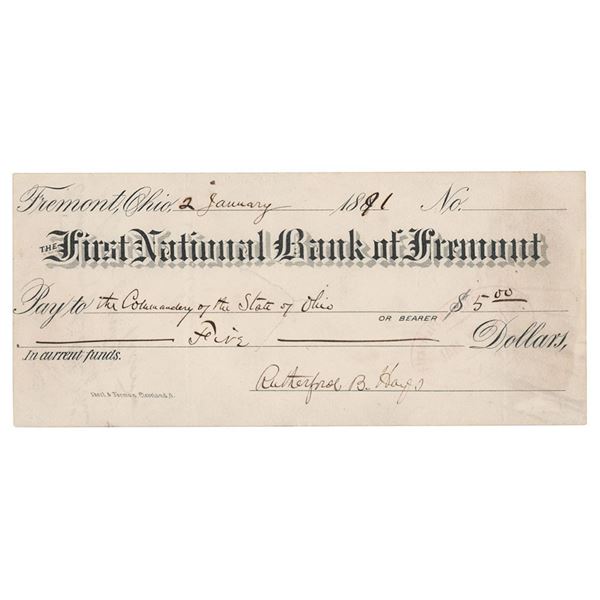 Fremont, Ohio, 2 January 1891 No.
THE First National Bank of Fremont
Pay to the Commandery of the State of Ohio OR BEARER $ 5.00
Five Dollars,
In current funds.
Rutherford B. Hayes